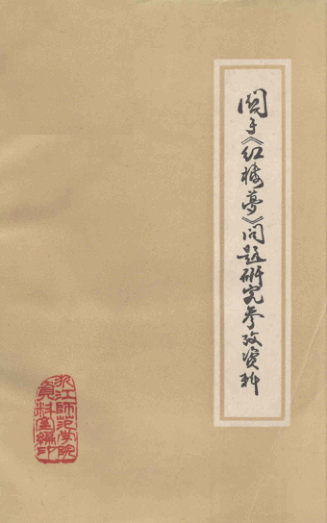 關于《红楼夢》问题研究参攷资料
浙江师范学院
資料室编印